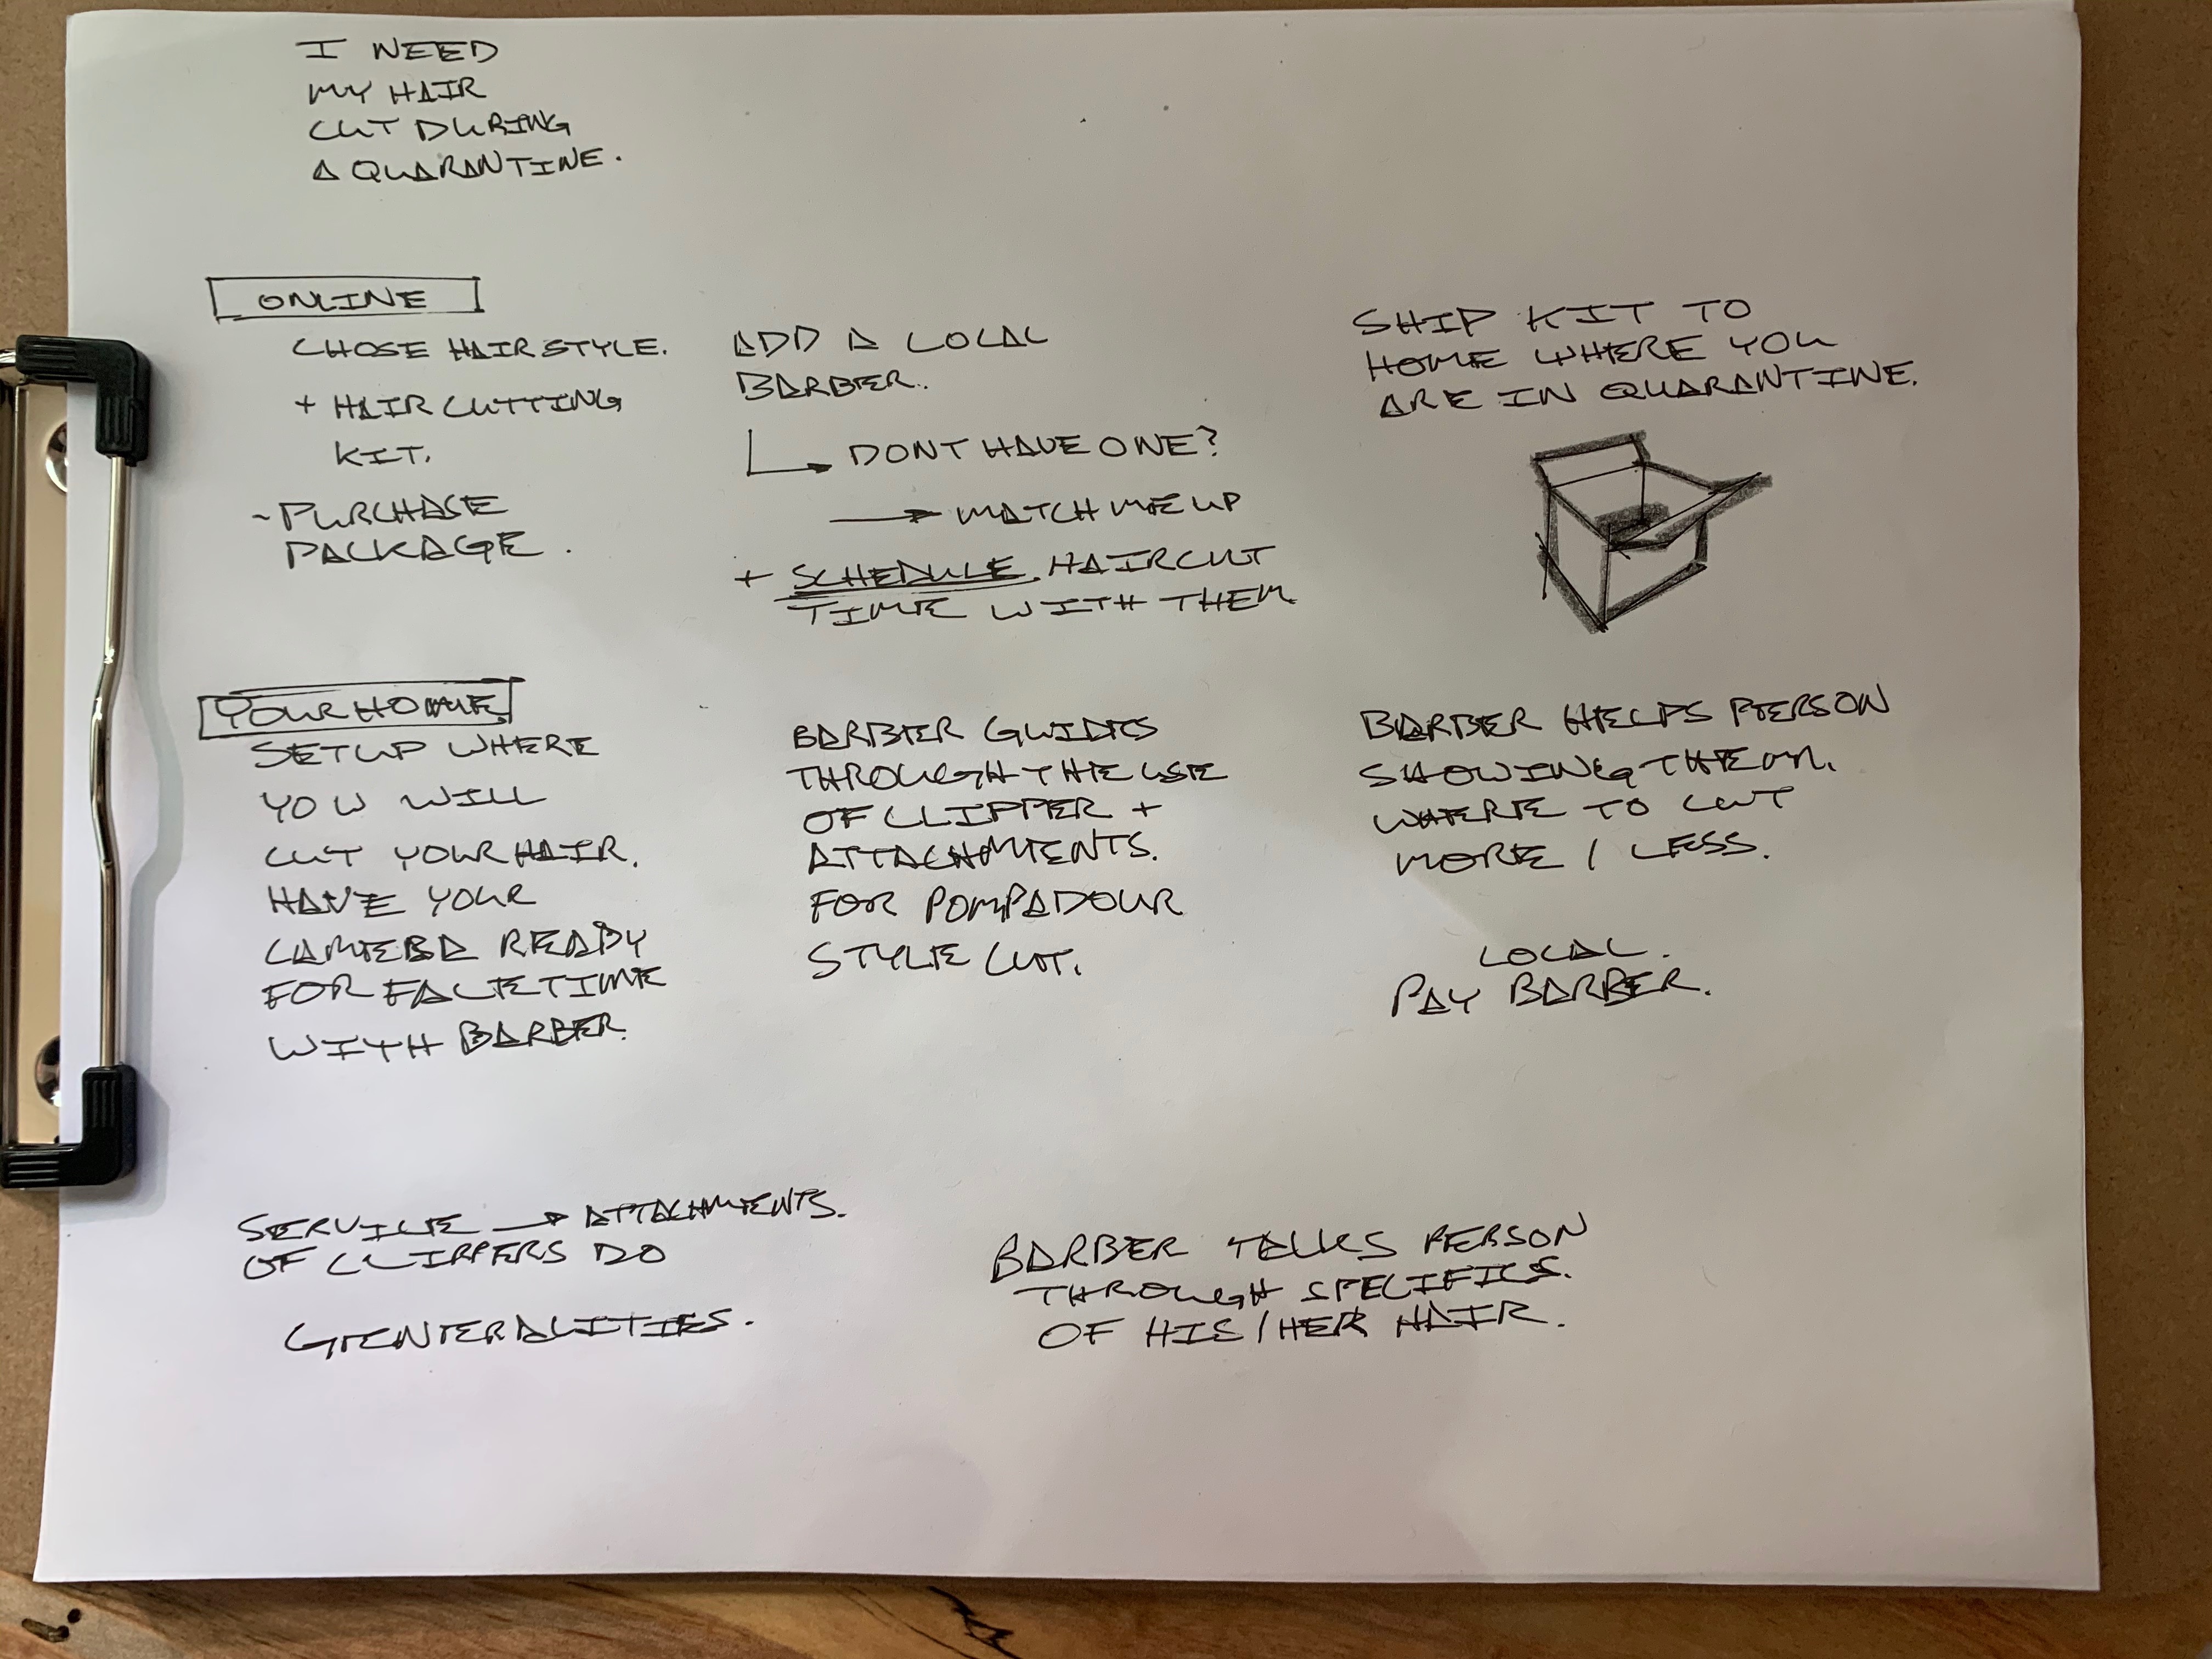 I NEED
MY HAIR
CUT DURING
A QUARANTINE.
ONLINE
CHOSE HAIRSTYLE.
+ HAIR CUTTING
KIT.
- PURCHASE
PACKAGE.
ADD A LOCAL
BARBER.
DONT HAVE ONE?
→ MATCH ME UP
+ SCHEDULE HAIRCUT
TIME WITH THEM
SHIP KIT TO
HOME WHERE YOU
ARE IN QUARANTINE.
YOUR HOME
SETUP WHERE
YOU WILL
CUT YOUR HAIR.
HAVE YOUR
CAMERA READY
FOR FACETIME
WITH BARBER.
BARBER GUIDES
THROUGH THE USE
OF CLIPPER +
ATTACHMENTS.
FOR POMPADOUR
STYLE CUT.
BARBER HELPS PERSON
SHOWING THEM.
WHERE TO CUT
MORE / LESS.
LOCAL.
PAY BARBER.
SERVICE → ATTACHMENTS.
OF CLIPPERS DO
GENERALITIES.
BARBER TALKS PERSON
THROUGH SPECIFICS.
OF HIS/HER HAIR.